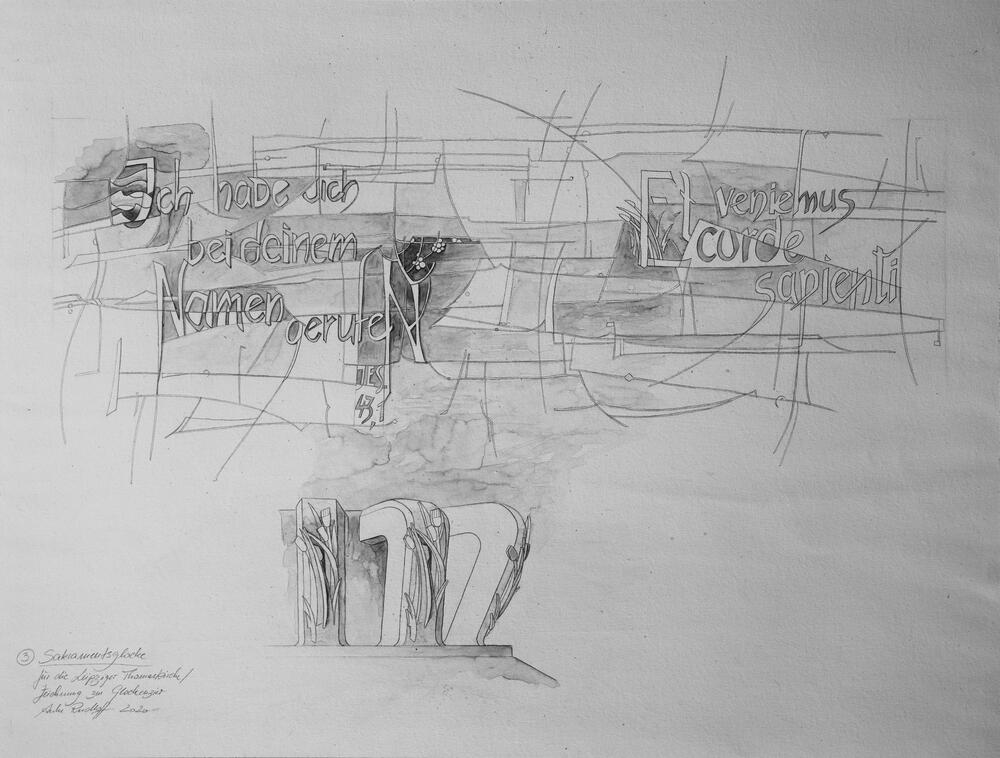 Ich habe dich
bei deinem
Namen gerufeN
JES.
43,1
Et veniemus
corde
sapienti
3 Sakramentsglocke
für die Leipziger Thomaskirche/
Zeichnung zur Glockenzier
2020